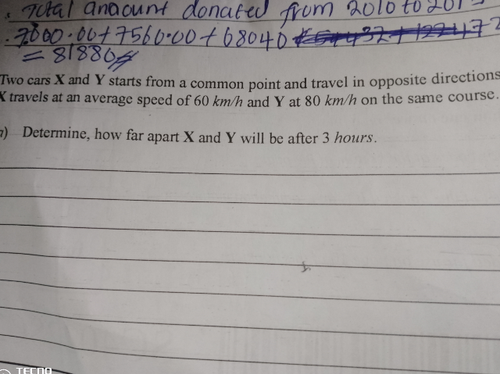 Total amount donated from 2010 to 201
7000.00+7560.00+68040
= 81880
Two cars X and Y starts from a common point and travel in opposite directions
X travels at an average speed of 60 km/h and Y at 80 km/h on the same course.
) Determine, how far apart X and Y will be after 3 hours.
TECNO